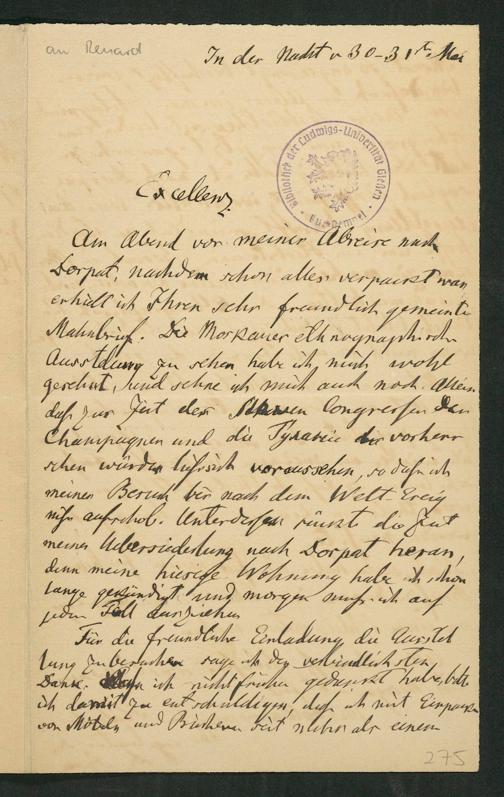 an Renard
In der Nacht v 30-31ten Mai
Bibliothek der Ludwigs-Universität Gießen
Excellenz.
Am Abend vor meiner Abreise nach
Dorpat, nachdem schon alles verpackt war
erhielt ich Ihren sehr freundlich gemeinten
Mahnbrief. Die Moskauer ethnographische
Ausstellung zu sehen, habe ich mich wohl
gesehnt, und sehne ich mich auch noch. Allein
daß zur Zeit der Slawen Congresse der
Champagner und die Tyrannei vorherr
schen würden ließ sich voraussehen, so daß ich
meinen Besuch bis nach dem Welt-Ereig
niß aufschob. Unterdessen rückt die Zeit
meiner Uebersiedelung nach Dorpat heran,
denn meine hiesige Wohnung habe ich schon
lange gekündigt und morgen muß ich auf
jeden Fall ausziehen
Für die freundliche Einladung die Ausstel
lung zu besuchen sage ich den verbindlichsten
Dank. ich nicht früher gedankt habe, bitte
ich damit zu entschuldigen, daß ich mit Einpacken
von Möbeln und Büchern seit mehr als einem
275